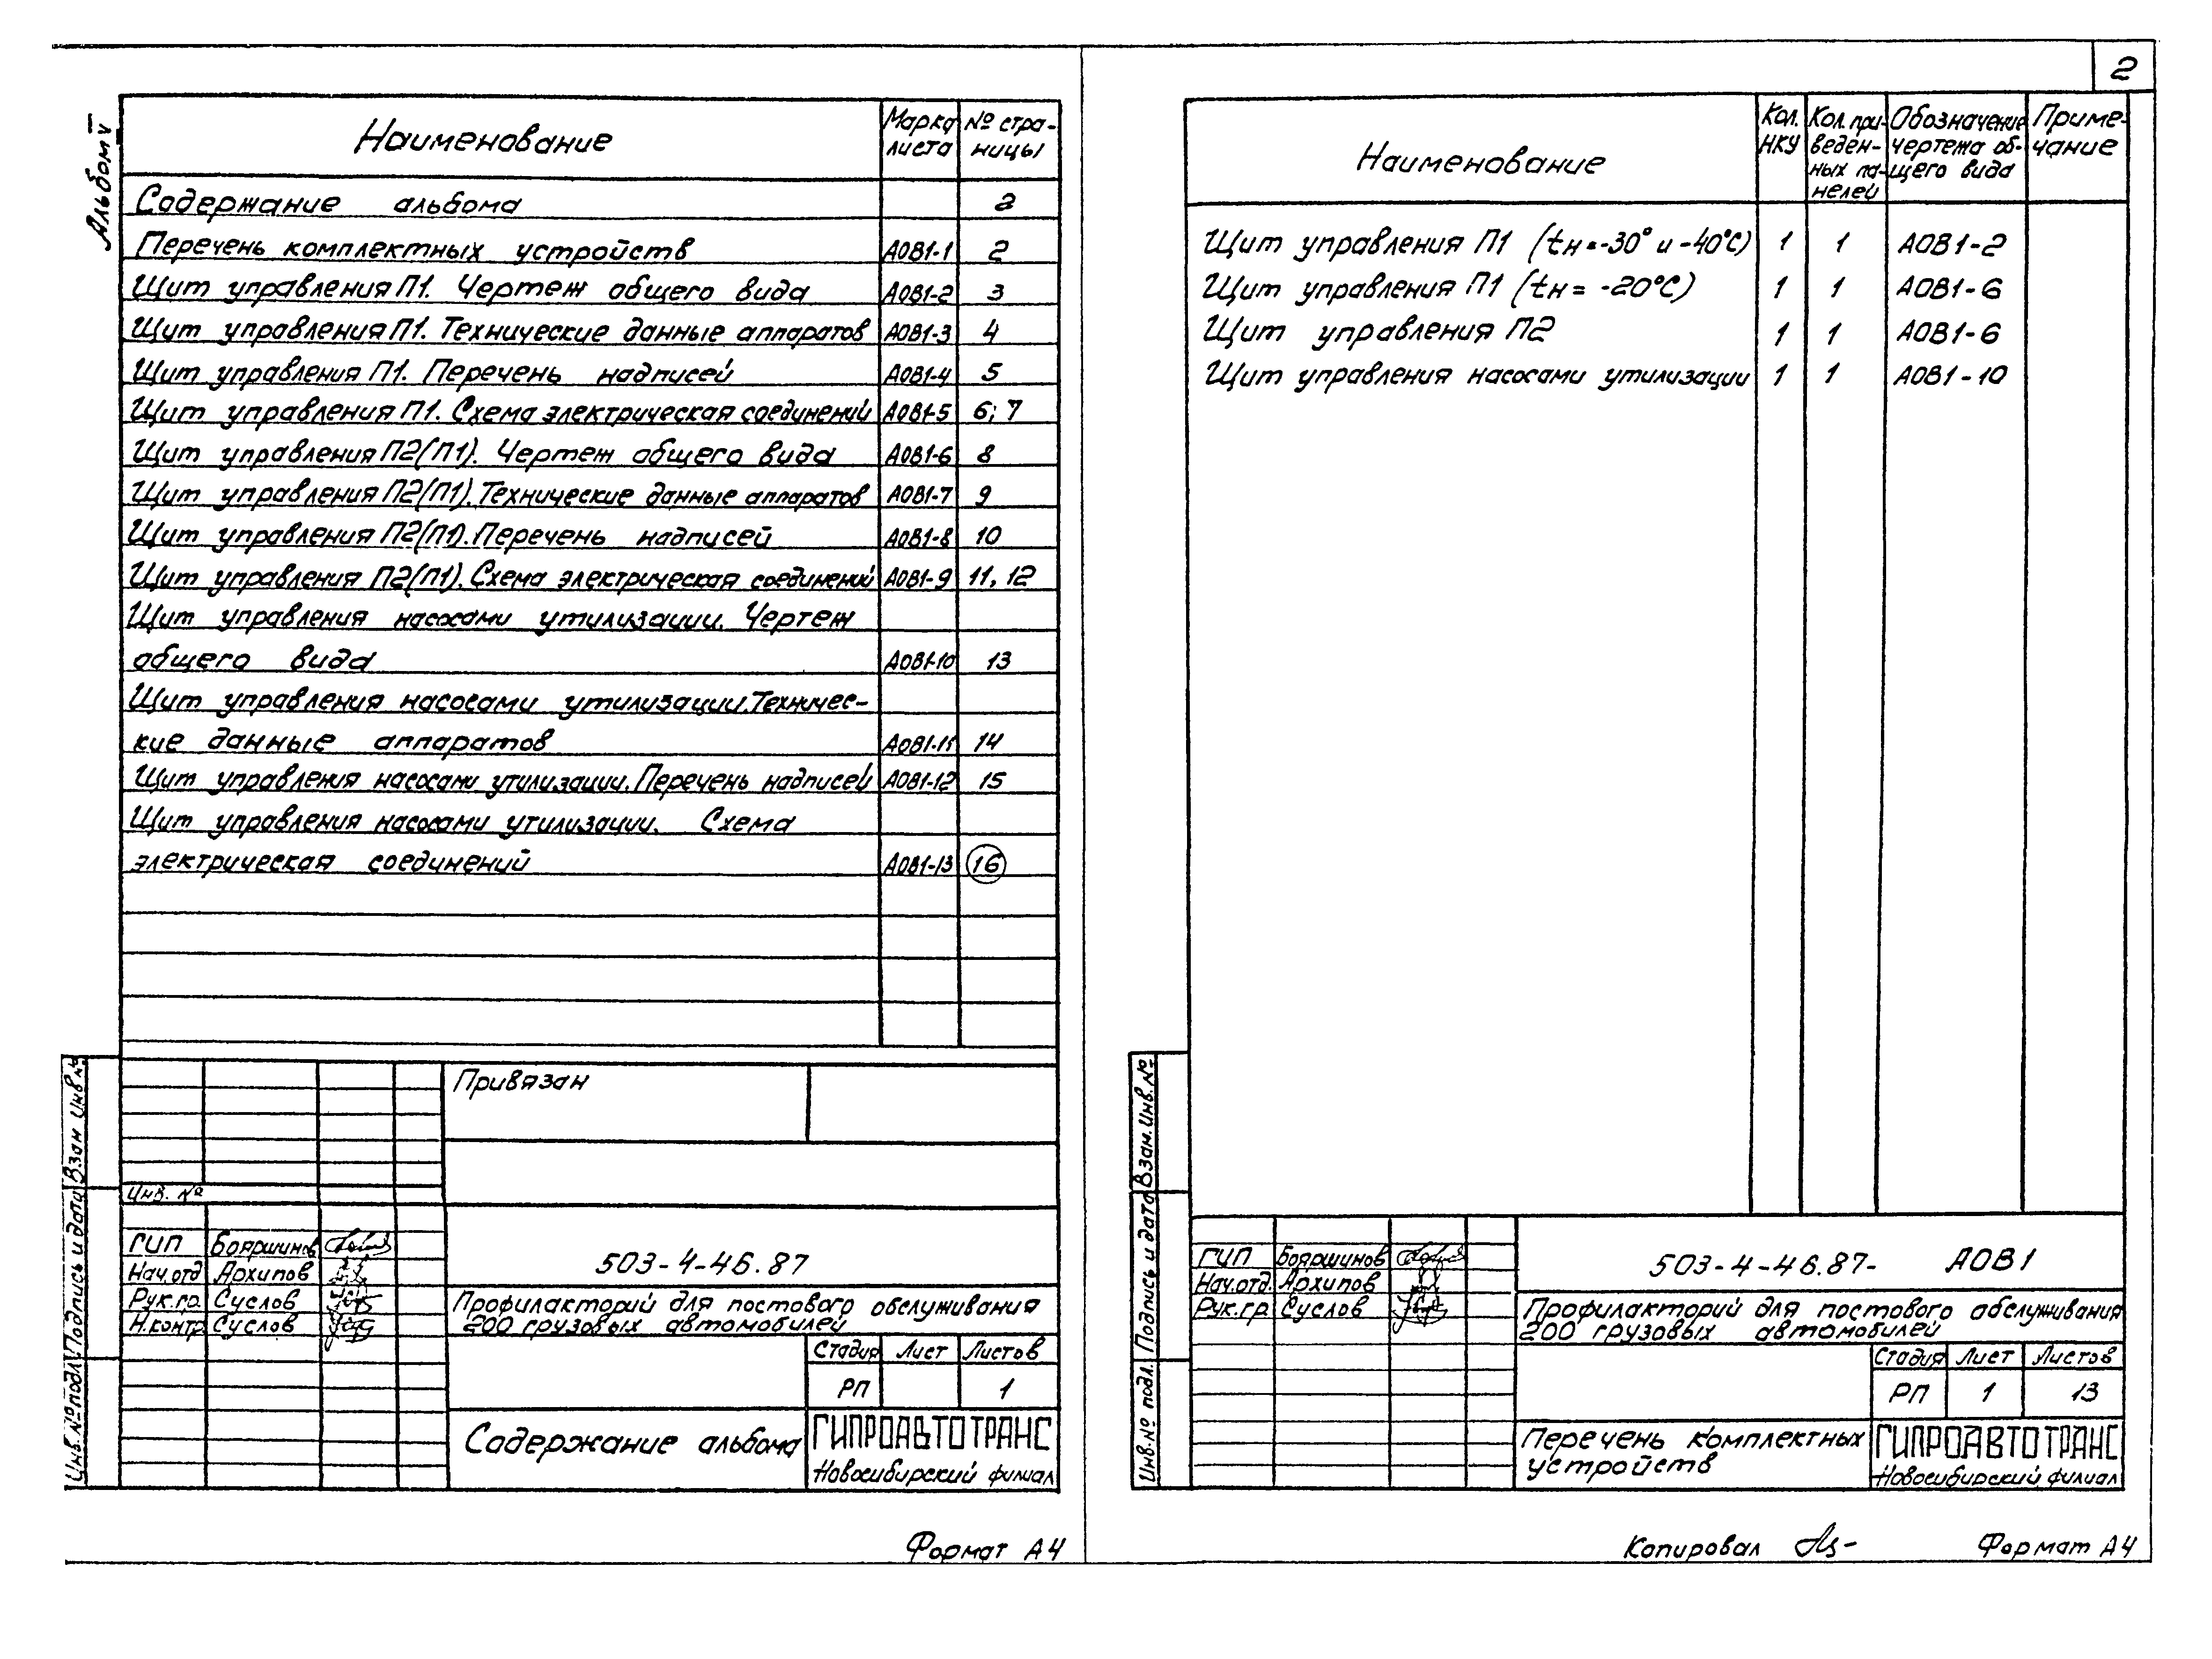 2
Альбом V
Наименование Марка листа № стра- ницы
Содержание альбома 2
Перечень комплектных устройств АОВ1-1 2
Щит управления П1. Чертеж общего вида АОВ1-2 3
Щит управления П1. Технические данные аппаратов АОВ1-3 4
Щит управления П1. Перечень надписей АОВ1-4 5
Щит управления П1. Схема электрическая соединений АОВ1-5 6; 7
Щит управления П2(П1). Чертеж общего вида АОВ1-6 8
Щит управления П2(П1). Технические данные аппаратов АОВ1-7 9
Щит управления П2(П1). Перечень надписей АОВ1-8 10
Щит управления П2(П1). Схема электрическая соединений АОВ1-9 11, 12
Щит управления насосами утилизации. Чертеж
общего вида АОВ1-10 13
Щит управления насосами утилизации. Техничес-
кие данные аппаратов АОВ1-11 14
Щит управления насосами утилизации. Перечень надписей АОВ1-12 15
Щит управления насосами утилизации. Схема
электрическая соединений АОВ1-13 16
Привязан
Инв. №
ГИП Бояршинов
Нач.отд Архипов
Рук.гр. Суслов
Н.контр Суслов
503-4-46.87
Профилакторий для постового обслуживания
200 грузовых автомобилей
Стадия Лист Листов
РП 1
Содержание альбома
ГИПРОАВТОТРАНС
Новосибирский филиал
Инв.№ подл. Подпись и дата Взам Инв.№
Формат А4
Наименование Кол. НКУ Кол. при- веден- ных па- нелей Обозначение чертежа об- щего вида Приме- чание
Щит управления П1 (tн=-30° и -40°С) 1 1 АОВ1-2
Щит управления П1 (tн= -20°С) 1 1 АОВ1-6
Щит управления П2 1 1 АОВ1-6
Щит управления насосами утилизации 1 1 АОВ1-10
ГИП Бояршинов
Нач.отд. Архипов
Рук.гр. Суслов
503-4-46.87- АОВ1
Профилакторий для постового обслуживания
200 грузовых автомобилей
Стадия Лист Листов
РП 1 13
Перечень комплектных
устройств
ГИПРОАВТОТРАНС
Новосибирский филиал
Инв.№ подл. Подпись и дата Взам. Инв.№
Копировал
Формат А4